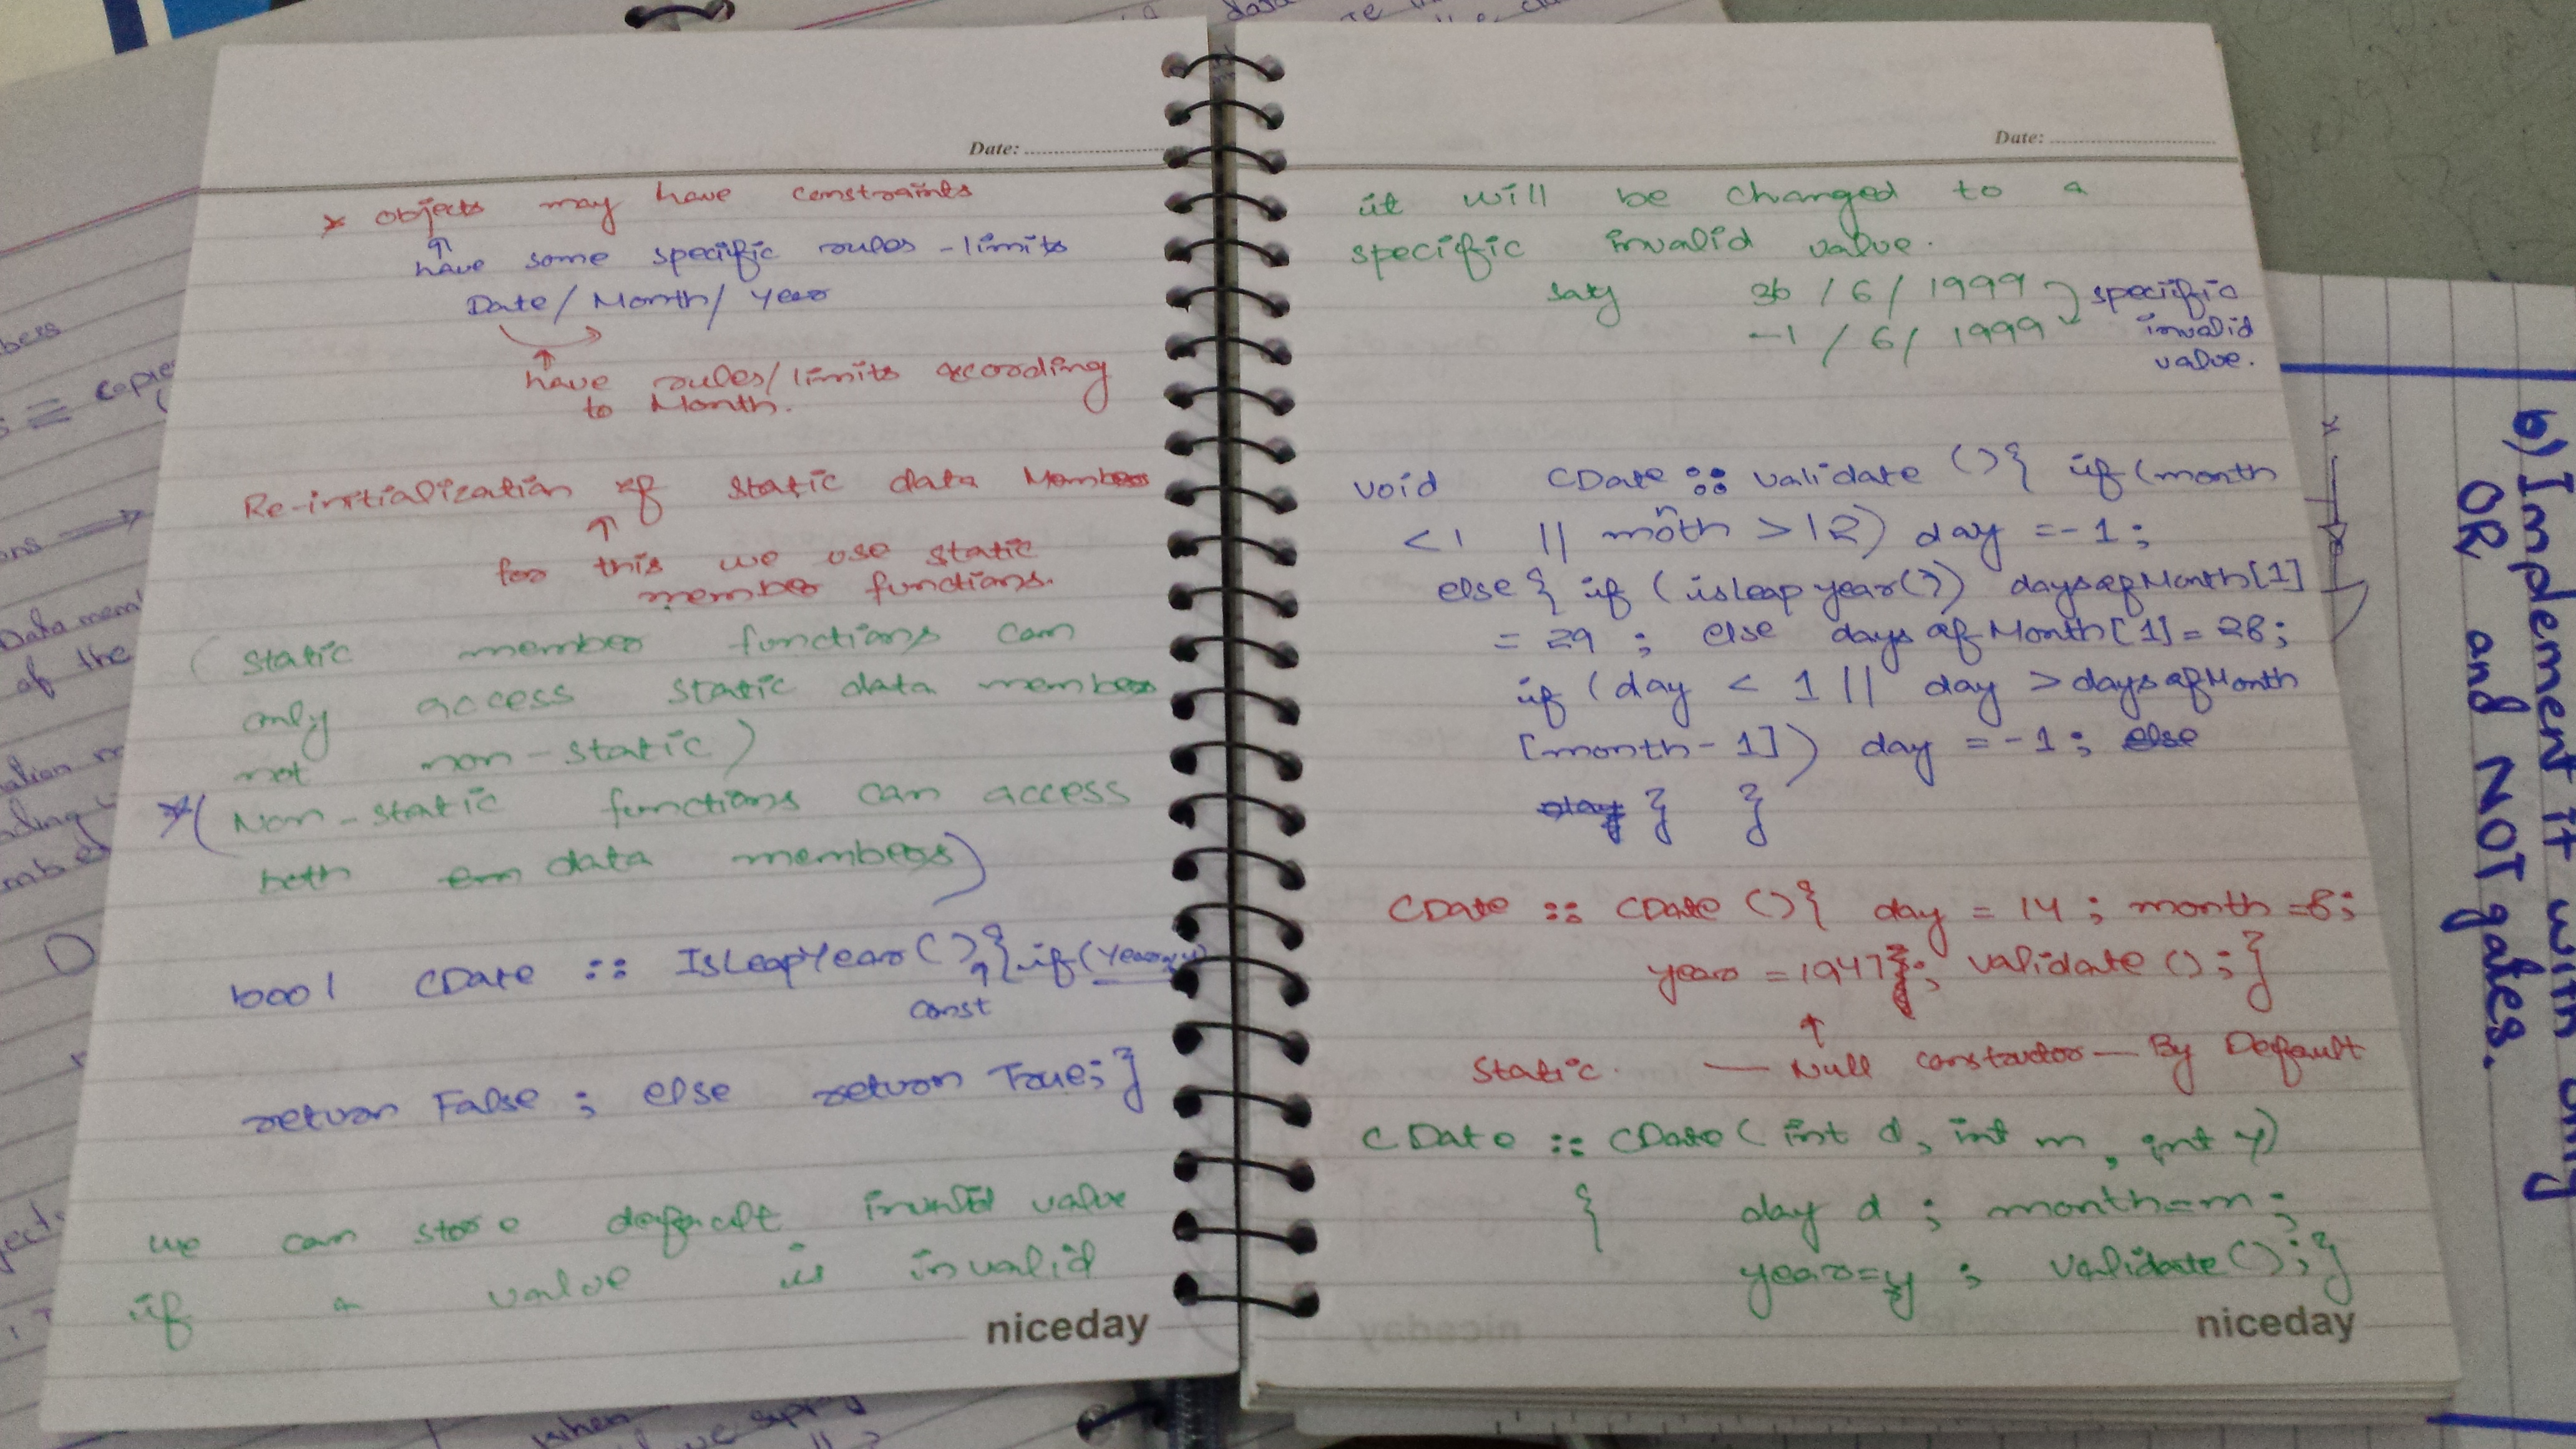 Date:
* objects may have constraints
have some specific rules - limits
Date / Month / Year
have rules/limits according
to Month.
Re-initialization of static data Members
for this we use static
member functions.
(static member functions can
only access static data members
not non-static)
*(Non-static functions can access
both data members)
bool CDate :: IsLeapYear(){ if(Year%4)
const
return False ; else return True; }
we can store default invalid value
if a value is invalid
niceday
Date:
it will be changed to a
specific invalid value.
say 36 / 6 / 1999 specific
-1 / 6 / 1999 invalid
value.
void CDate :: validate (){ if (month
<1 || moth >12) day =-1 ;
n
else{ if (isleap year()) daysofMonth[1]
= 29 ; else days of Month[1] = 28;
if (day < 1 || day > daysofMonth
[month-1]) day =-1; else
day } }
CDate :: CDate (){ day = 14 ; month =8;
year =1947 ; validate (); }
static. — Null constructor — By Default
CDate :: CDate( int d, int m, int y)
{ day d ; month=m ;
year=y ; validate(); }
niceday
b) Implement it with only
OR and NOT gates.
Data mem
of the
copies